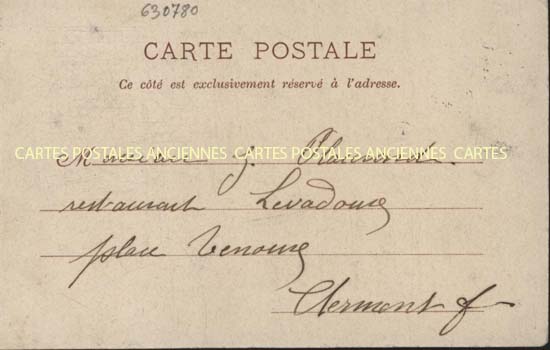 630780
CARTE POSTALE
Ce côté est exclusivement réservé à l'adresse.
CARTES POSTALES ANCIENNES CARTES POSTALES ANCIENNES CARTES
Monsieur J.
restaurant Levadoux
place
Clermont f